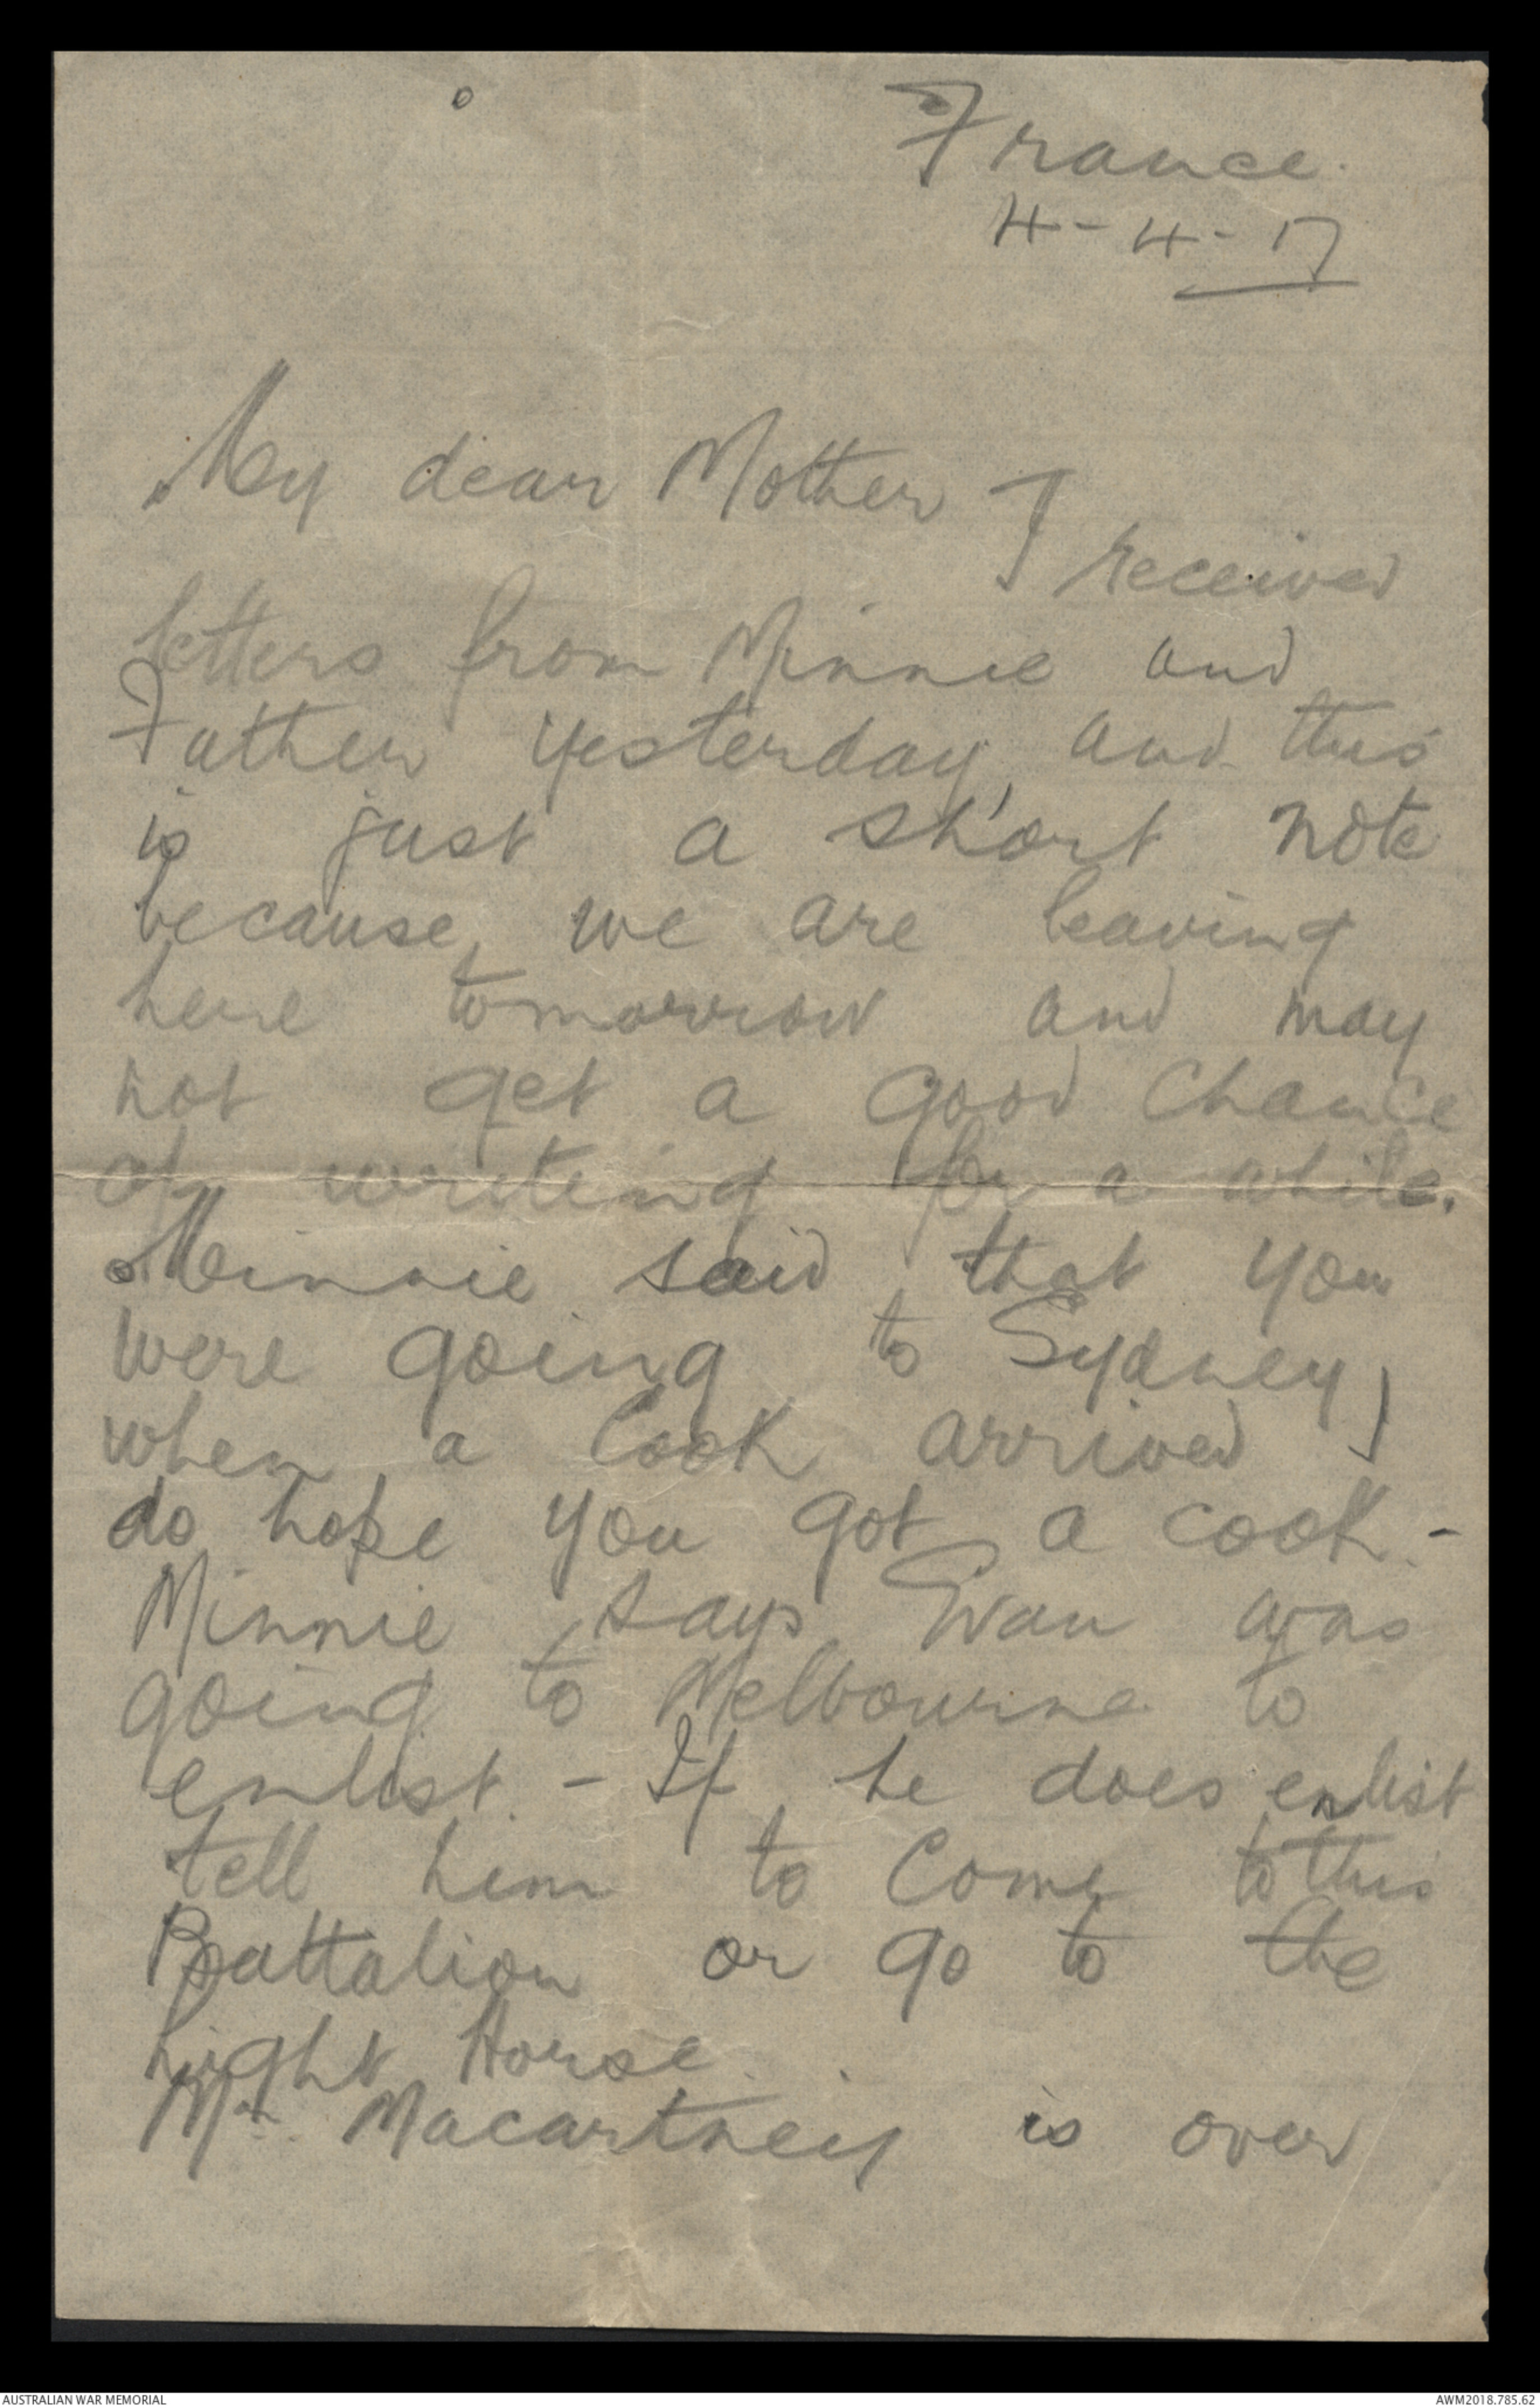 France.
4-4-17
My dear Mother
I received
letters from Minnie and
Father yesterday, and this
is just a short note
because, we are leaving
here tomorrow and may
not get a good chance
of writing for a while.
Minnie said that you
were going to Sydney,
when a Cook arrived I
do hope you got a cook. -
Minnie says Ewan was
going to Melbourne to
enlist. - If he does enlist
tell him to come to this
Battalion or go to the
Light Horse.
Mr. Macartney is over
AUSTRALIAN WAR MEMORIAL
AWM2018.785.62